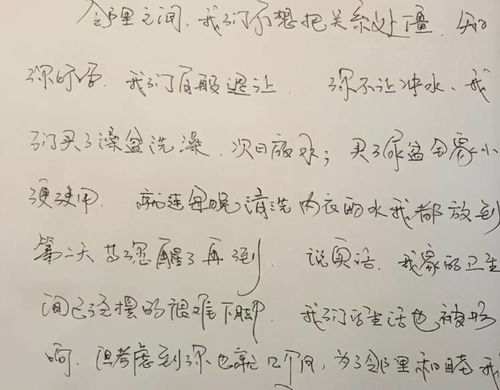 邻里之间，我们不想把关系处僵，知
你的话，我们尽般退让，你不让冲水、我
们买了澡盆洗澡，次日放水；买了尿盆全家小
便使用，就连每晚清洗内衣的水我都放到
第二天等您醒了再倒，说真话，我家的卫生
间已经摆的很难下脚，我们的生活也被影
响，但考虑到你也就几个月，为了邻里和睦我